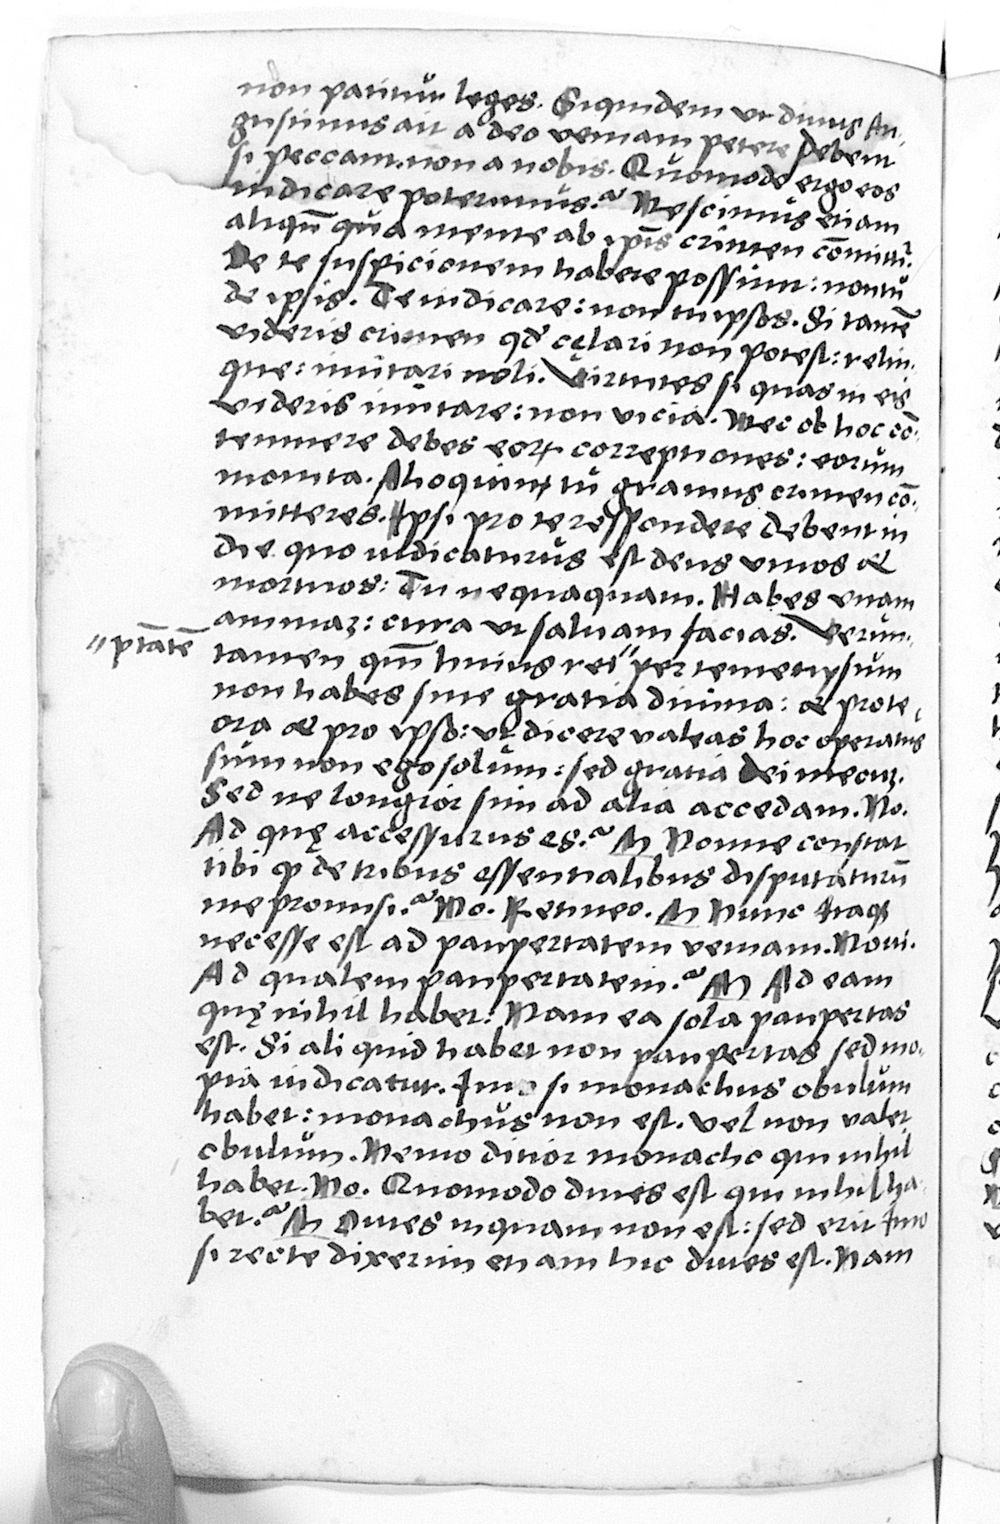 non patitur leges. Siquidem vt diuus Au-
gustinus ait a deo veniam petere debent
si peccant. non a nobis. Quomodo ergo eos
iudicare poterimus? Nescimus etiam
aliqñ qua mente ab ip̄is crimen cōmitti?
De te suspicionem habere possunt: non tu
de ipsis. Te iudicare: non tu ipsos. Si tamē
videris crimen qđ cęlari non potest: relin-
que: imitari noli. Virtutes si quas in eis
videris imitare: non vicia. Nec ob hoc cō-
temnere debes eorꝝ correptiones: eorum
monita. Alioquin tu grauius crimen cō-
mitteres. Ipsi pro te respondere debent in
die quo iudicaturus est deus viuos &
mortuos: Tu nequaquam. Habes vnam
animaꝫ: cura vt saluam facias. Verun-
"ptātē
tamen qm̄ huius rei" per temetipsum
non habes sine gratia diuina: & pro te
ora & pro ipso: vt dicere valeas hoc operatus
sum non ego solum: sed gratia dei mecuꝫ.
Sed ne longior sim ad alia accedam. No.
Ad quę accessurus es? M Nonne constat
tibi ꝙ de tribus essentialibus disputaturū
me promisi? No. Retineo. M Nunc itaqꝫ
necesse est ad paupertatem veniam. Noui.
Ad qualem paupertatem? M Ad eam
quę nihil habet: Nam ea sola paupertas
est. Si aliquid habet non paupertas sed ino-
pia iudicatur. Imo si monachus obulum
habet: monachus non est. vel non valet
obulum. Nemo ditior monacho qui nihil
habet. No. Quomodo diues est qui nihil ha-
bet? M Diues inquam non est: sed erit Imo
si recte dixerim etiam hic diues est. Nam